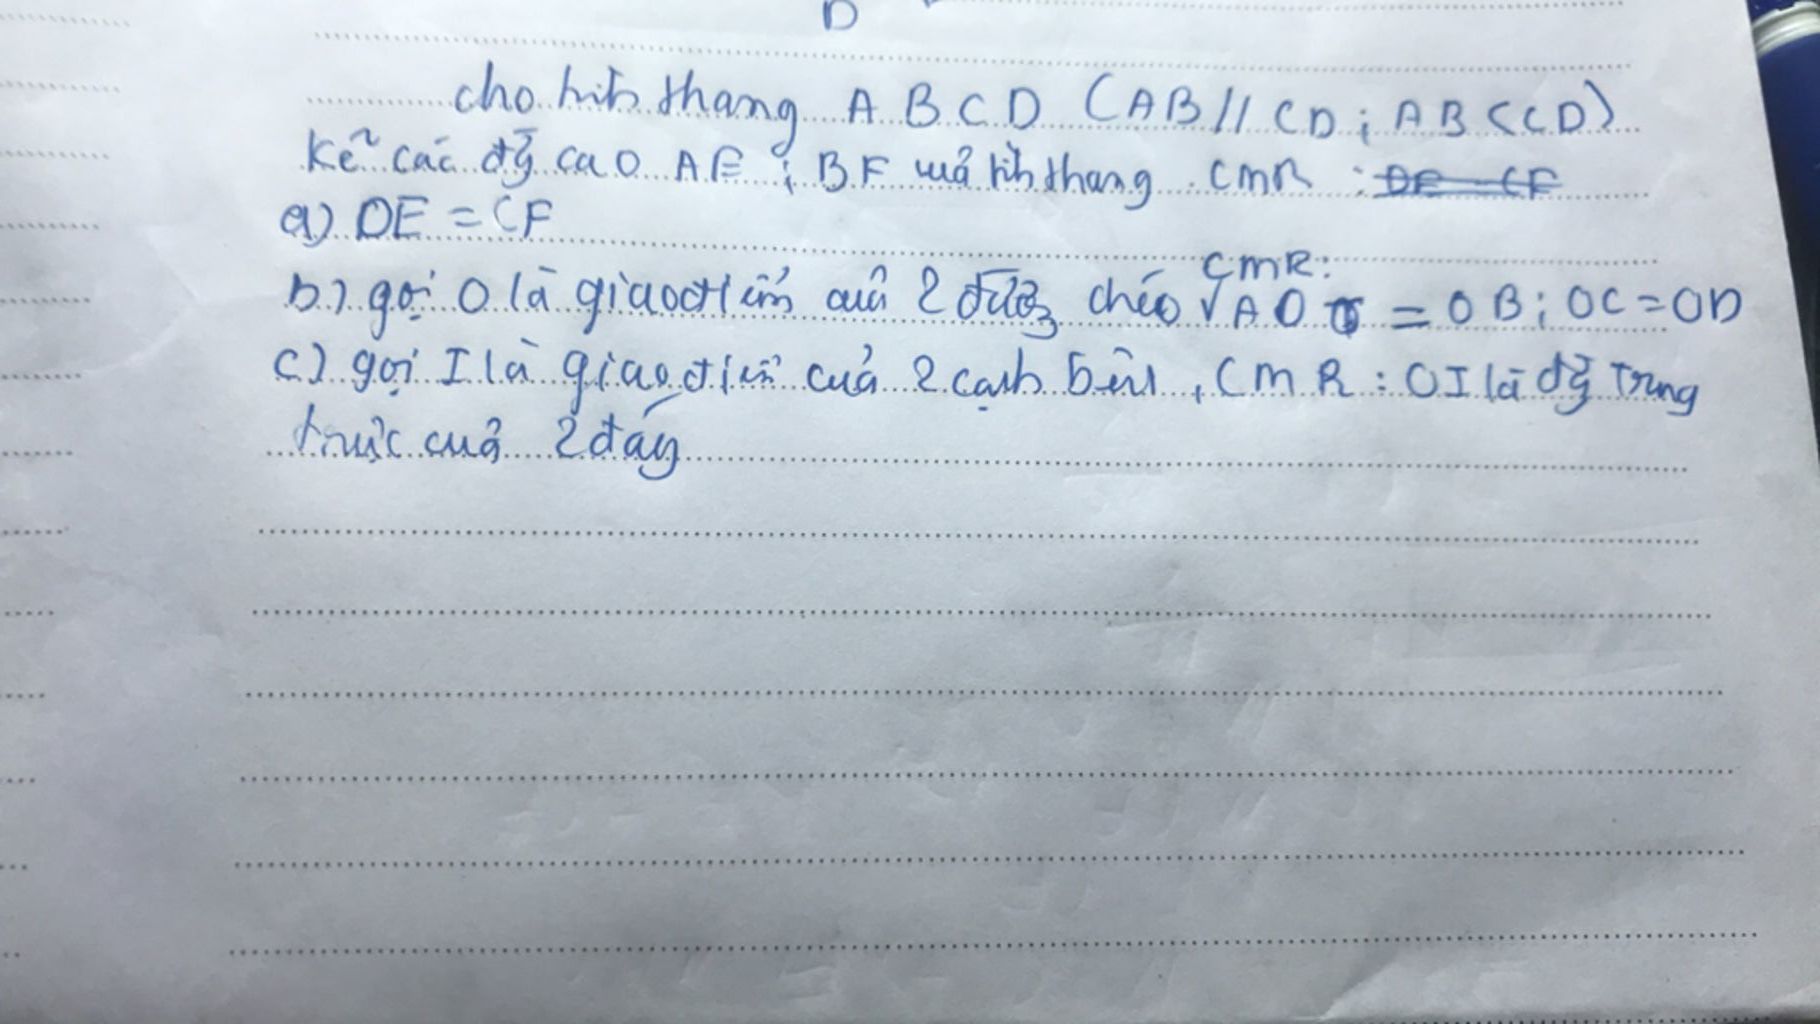 D
cho hìh thang ABCD (AB // CD ; AB < CD)
Kẻ các đg cao AE ; BF của hìh thang. CMR : DE = CF
a) DE = CF
CMR:
b) gọi O là giao điểm của 2 đường chéo √ AO = OB ; OC = OD
c) gọi I là giao điểm của 2 cạh bên, CMR : OI là đg Trung
trực của 2 đáy